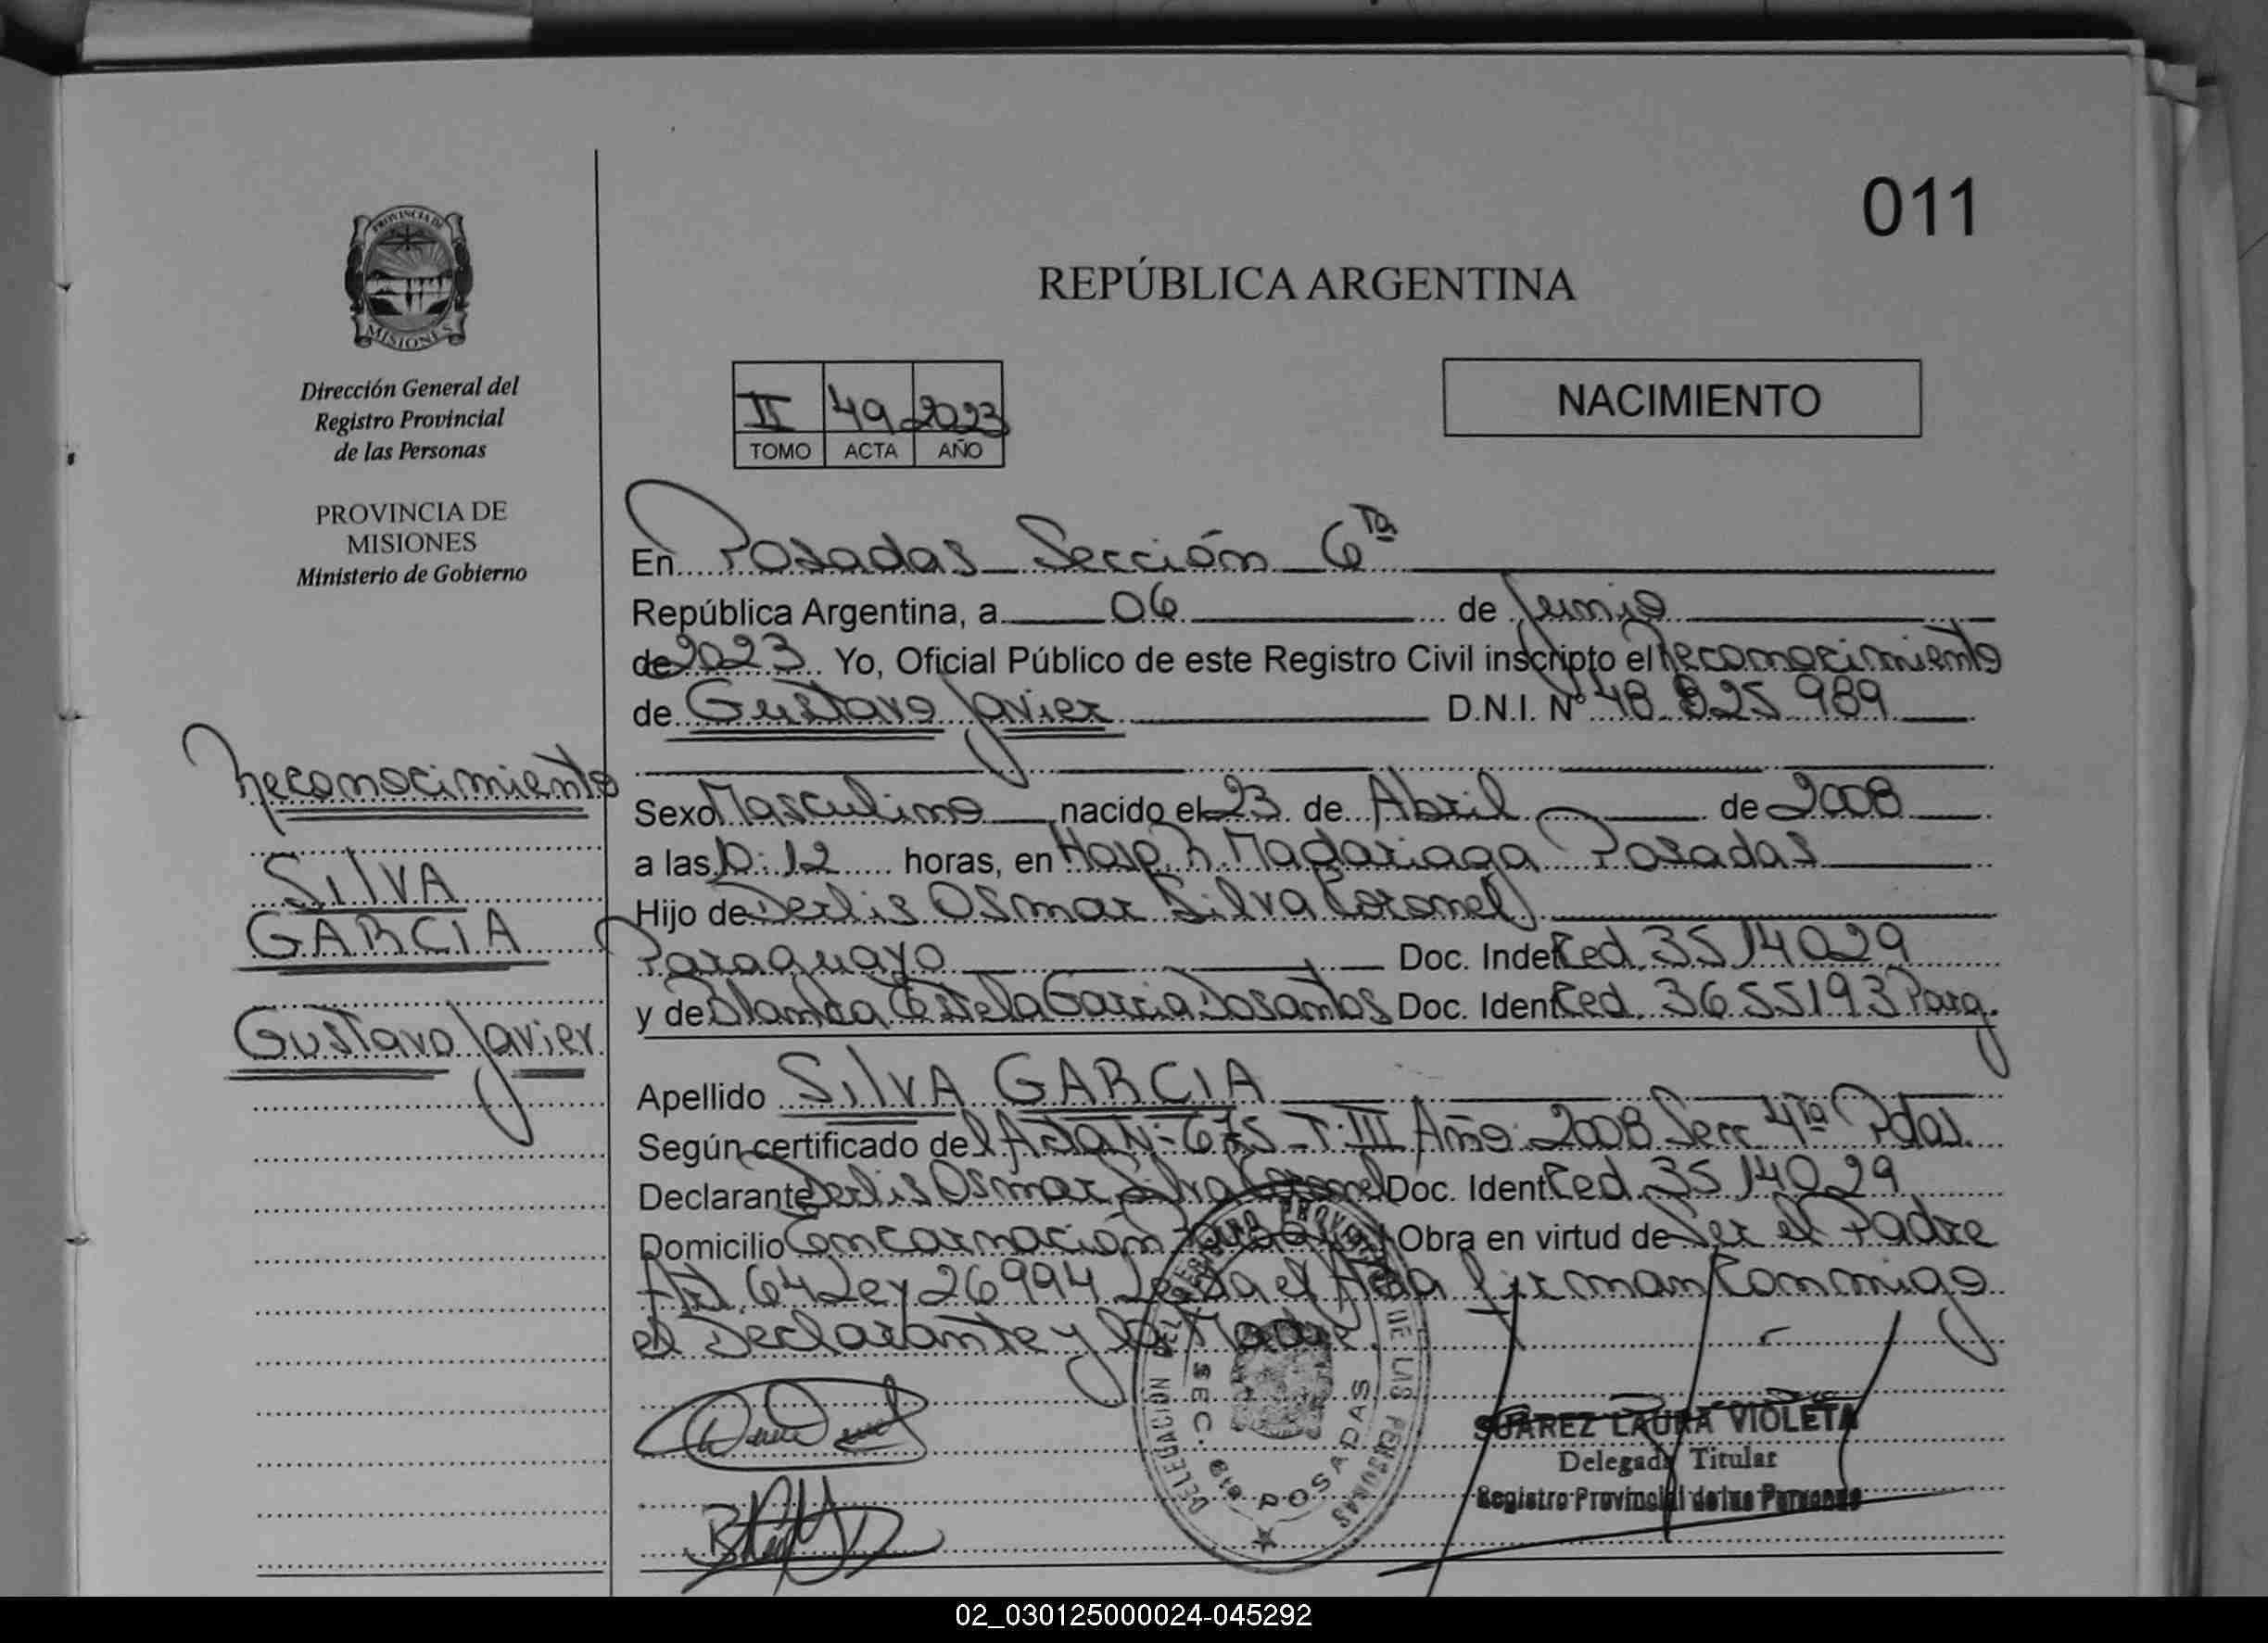 011
PROVINCIA DE
MISIONES
REPÚBLICA ARGENTINA
Dirección General del
Registro Provincial
de las Personas
PROVINCIA DE
MISIONES
Ministerio de Gobierno
II 49 2023
TOMO ACTA AÑO
NACIMIENTO
En Posadas Sección 6ta
República Argentina, a 06 de Junio
de 2023 Yo, Oficial Público de este Registro Civil inscripto el Reconocimiento
de Gustavo Javier D.N.I. Nº 48 825 989
Sexo Masculino nacido el 23 de Abril de 2008
a las 10:12 horas, en Hosp. R. Madariaga Posadas
Hijo de Derlis Osmar Silva Coronel
Paraguayo Doc. Iden Ced. 3514029
y de Blanca Estela Garcia Dosantos Doc. Ident Ced. 3655193 Parag.
Apellido SILVA GARCIA
Según certificado del Acta Nº 675 T: III Año: 2008 Secc 4ta Pdas.
Declarante Derlis Osmar Silva Coronel Doc. Ident Ced. 3514029
Domicilio Encarnación Obra en virtud de Ser el Padre
Art. 64 Ley 26994 Leida el Acta firman conmigo
el Declarante y la Madre.
Reconocimiento
SILVA
GARCIA
Gustavo Javier
DELEGACION SEC. 6ta POSADAS
REGISTRO PROVINCIAL DE LAS PERSONAS
SUAREZ LAURA VIOLETA
Delegada Titular
Registro Provincial de las Personas
02_030125000024-045292